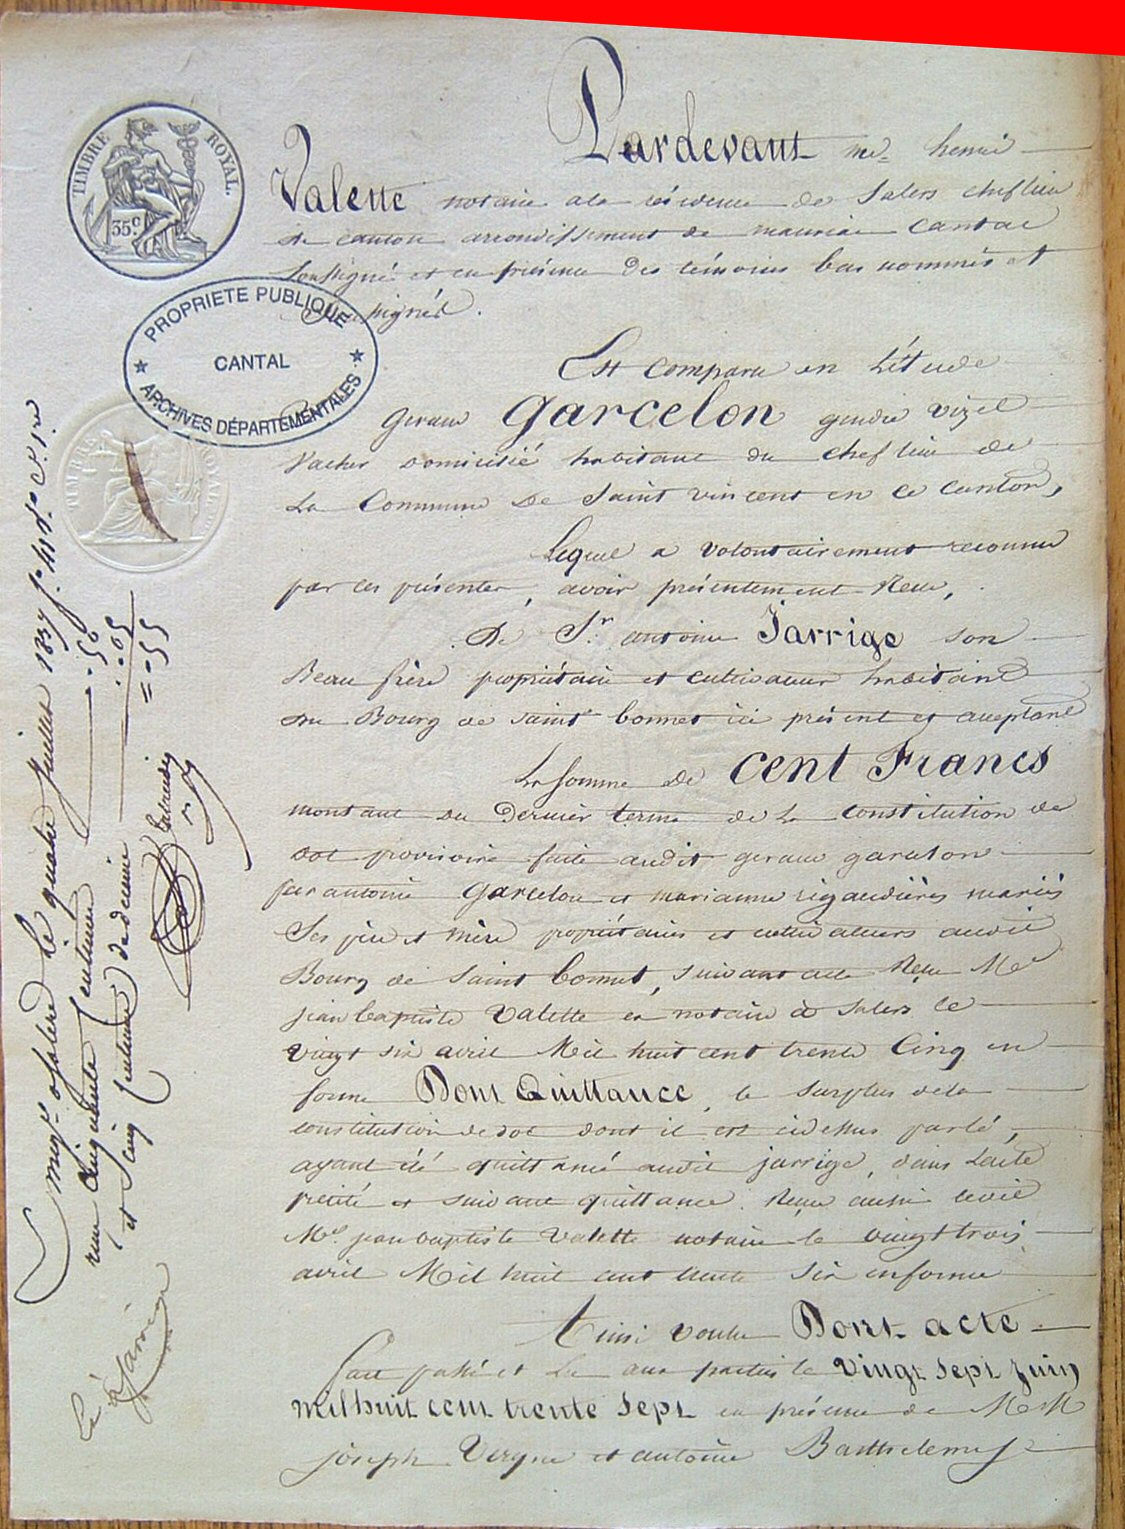 TIMBRE ROYAL.
35 c
PROPRIETE PUBLIQUE
CANTAL
ARCHIVES DÉPARTEMENTALES
TIMBRE ROYAL
Pardevant me. henri
Valette notaire ala résidence de Salers chef lieu
de canton arrondissement de mauriac Cantal
Soussigné et en présence des témoins bas nommés et
Soussignés.
Est comparu en L'étude
Geraud Garcelon gendre vizet
Vacher domicilié habitant du chef lieu de
La Commune De Saint vincent en ce canton,
Lequel a volontairement reconnu
par ces présentes, avoir présentement Reçu,
De Sr. antoine Jarrige son
Beau frère propriétaire et cultivateur habitant
du Bourg de saint bonnet ici présent et acceptant
La Somme de Cent Francs
montant du Dernier terme de La Constitution de
dot provisoire faite audit geraud garcelon
par antoine Garcelon et marianne rigaudières mariés
Ses père et Mère propriétaires et cultivateurs audit
Bourg de Saint bonnet, suivant acte Reçu Me
jean baptiste Valette en notaire à Salers le
vingt six avril Mil huit cent trente Cinq en
forme Dont Quittance, le surplus dela
constitution de dot dont il est cidessus parlé,
ayant été quittancé audit jarrige, dans L'acte
précité et suivant quittance Reçue aussi ledit
Me. jean baptiste Valette notaire le vingt trois
avril Mil huit cent trente Six en forme
Ainsi voulu Dont acte
Fait passé et Lu aux parties le vingt sept Juin
mil huit cent trente sept en présence de M M
joseph Vergne et antoine Barthelemy
Enregt. à Salers le quatre juillet 1837 fo. 41 Ro. C. 1re
reçu cinquante centimes - .50
et cinq centimes de décime - .05
= .55
a Jarrige